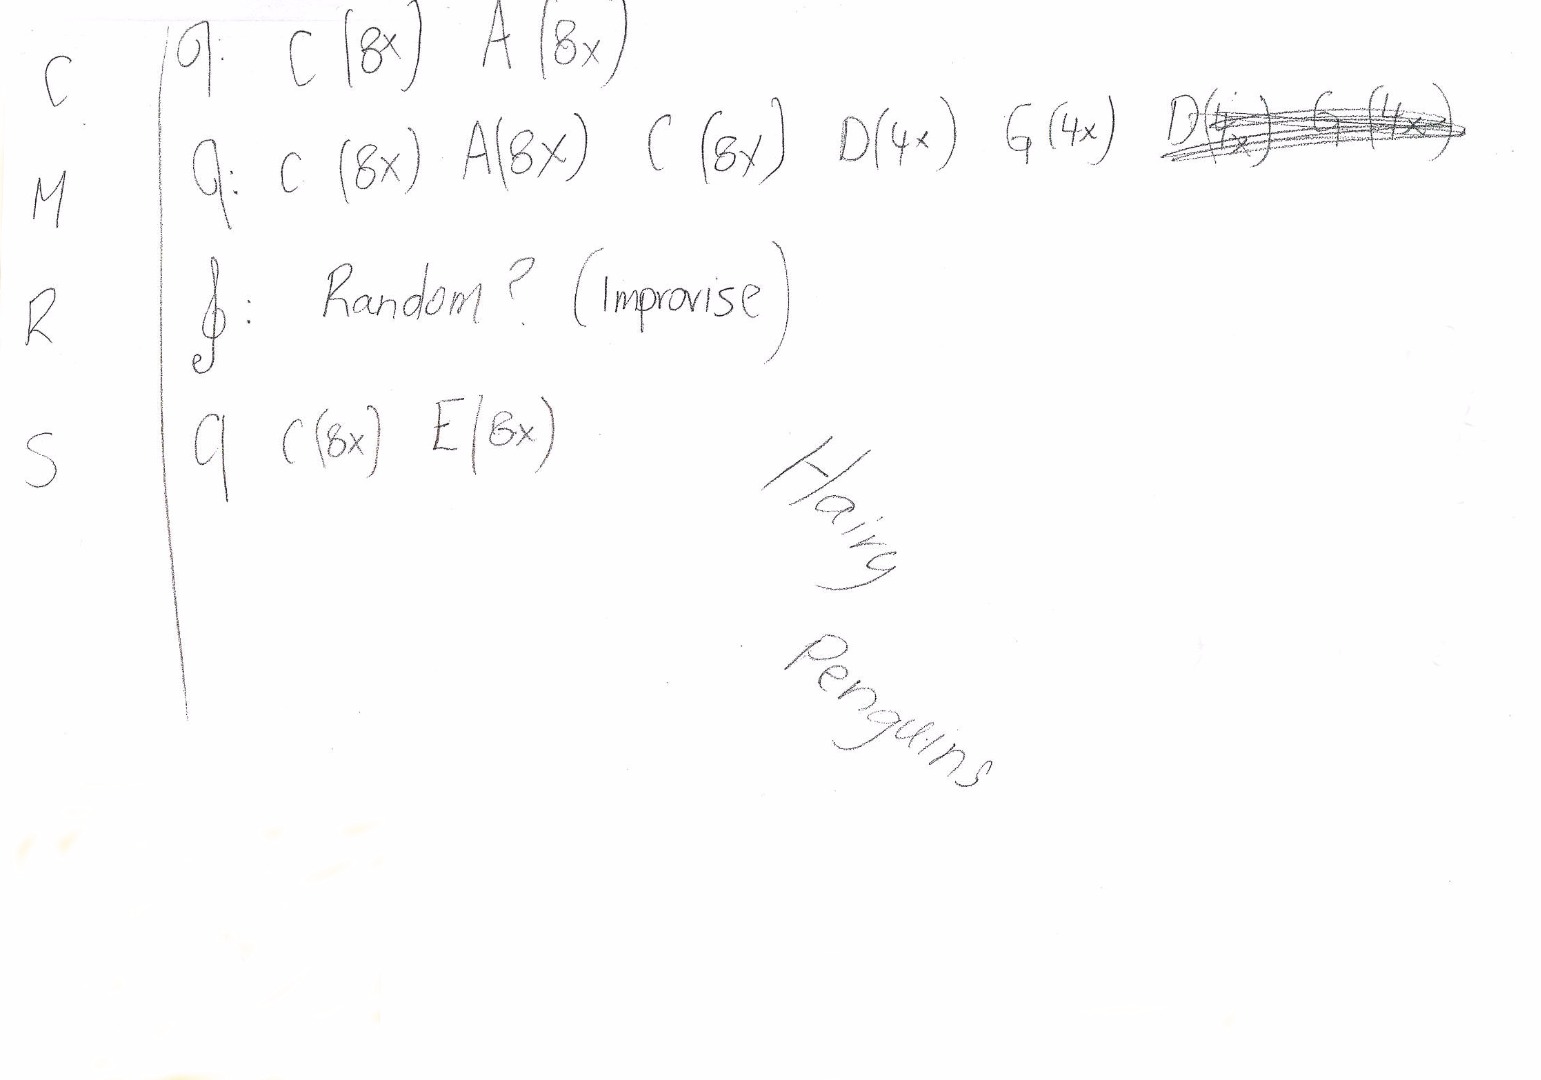 C 9: C (8x) A (8x)
M 9: C (8x) A(8x) C (8x) D(4x) G (4x) D(4x) G (4x)
R 𝄞: Random? (Improvise)
S 9 C(8x) E(8x)
Hairy
Penguins